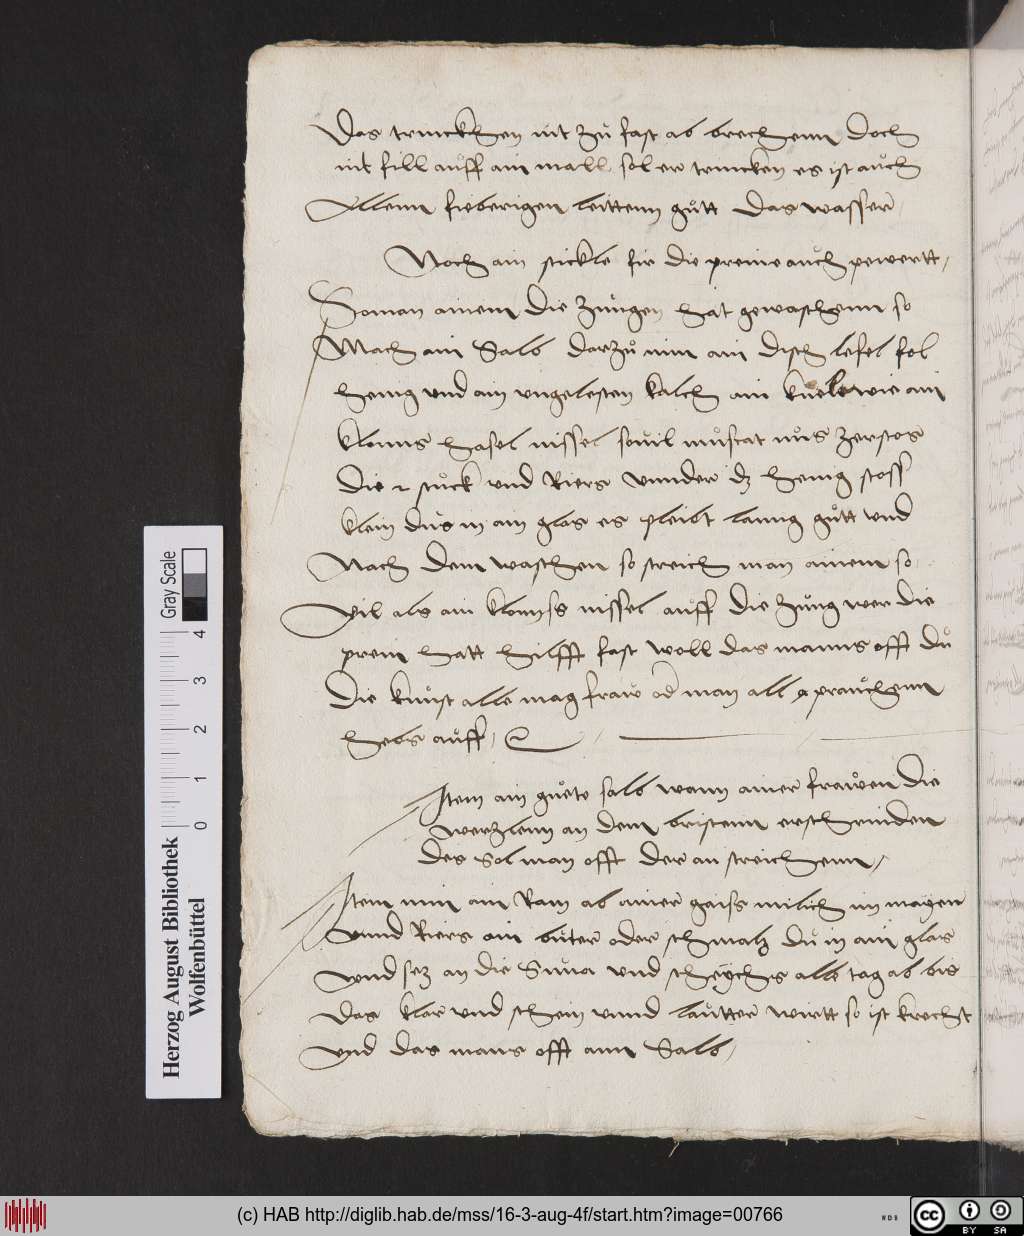 Das trincken nit zů fast ab brechenn Doch
nit fill aůff ain mall sol er trincken es ist aůch
Allenn fieberigen leittenn gůtt Das wasser
Noch ain stickle fir die preine aůch pewertt
So man ainem Die Zůngen hat gewaschenn so
Mach ain Salb Darzů nim ain Disch lefel fol
henig vnd ain vngelesten kalch ain kuele wie ain
klains hasel nissel souil můscat nůs zerstos
Die 2 stůck vnd Riers vnnder dz henig stoss
klein důs in ain glas es pleibt lanng gůtt vnd
Nach Dem waschen so streich man ainem so
vil als ain klainss nissel aůff Die Zůng wer Die
prein hatt hilfft fast woll das manns offt dů
Die kůnst alle mag fraw od man all prauchenn
hebs aůff
Item ain guete salb wann ainer frawen Die
werzlenn an dem bristenn erscheinden
Des Sol man offt Der an streichenn
Item nim ain Ram ab ainer gaiss milich im mayen
vnnd Riers ain bůter oder schmalz Dů in ain glas
vnd sez an die Sůnn vnd scheychs alle tag ab bis
Das klar vnd schein vnnd laůtter wirtt so ist krecht
vnd das mans offt ann Salb
Herzog August Bibliothek
Wolfenbüttel
0 1 2 3 4
Gray Scale
(c) HAB http://diglib.hab.de/mss/16-3-aug-4f/start.htm?image=00766
WDB
cc BY SA